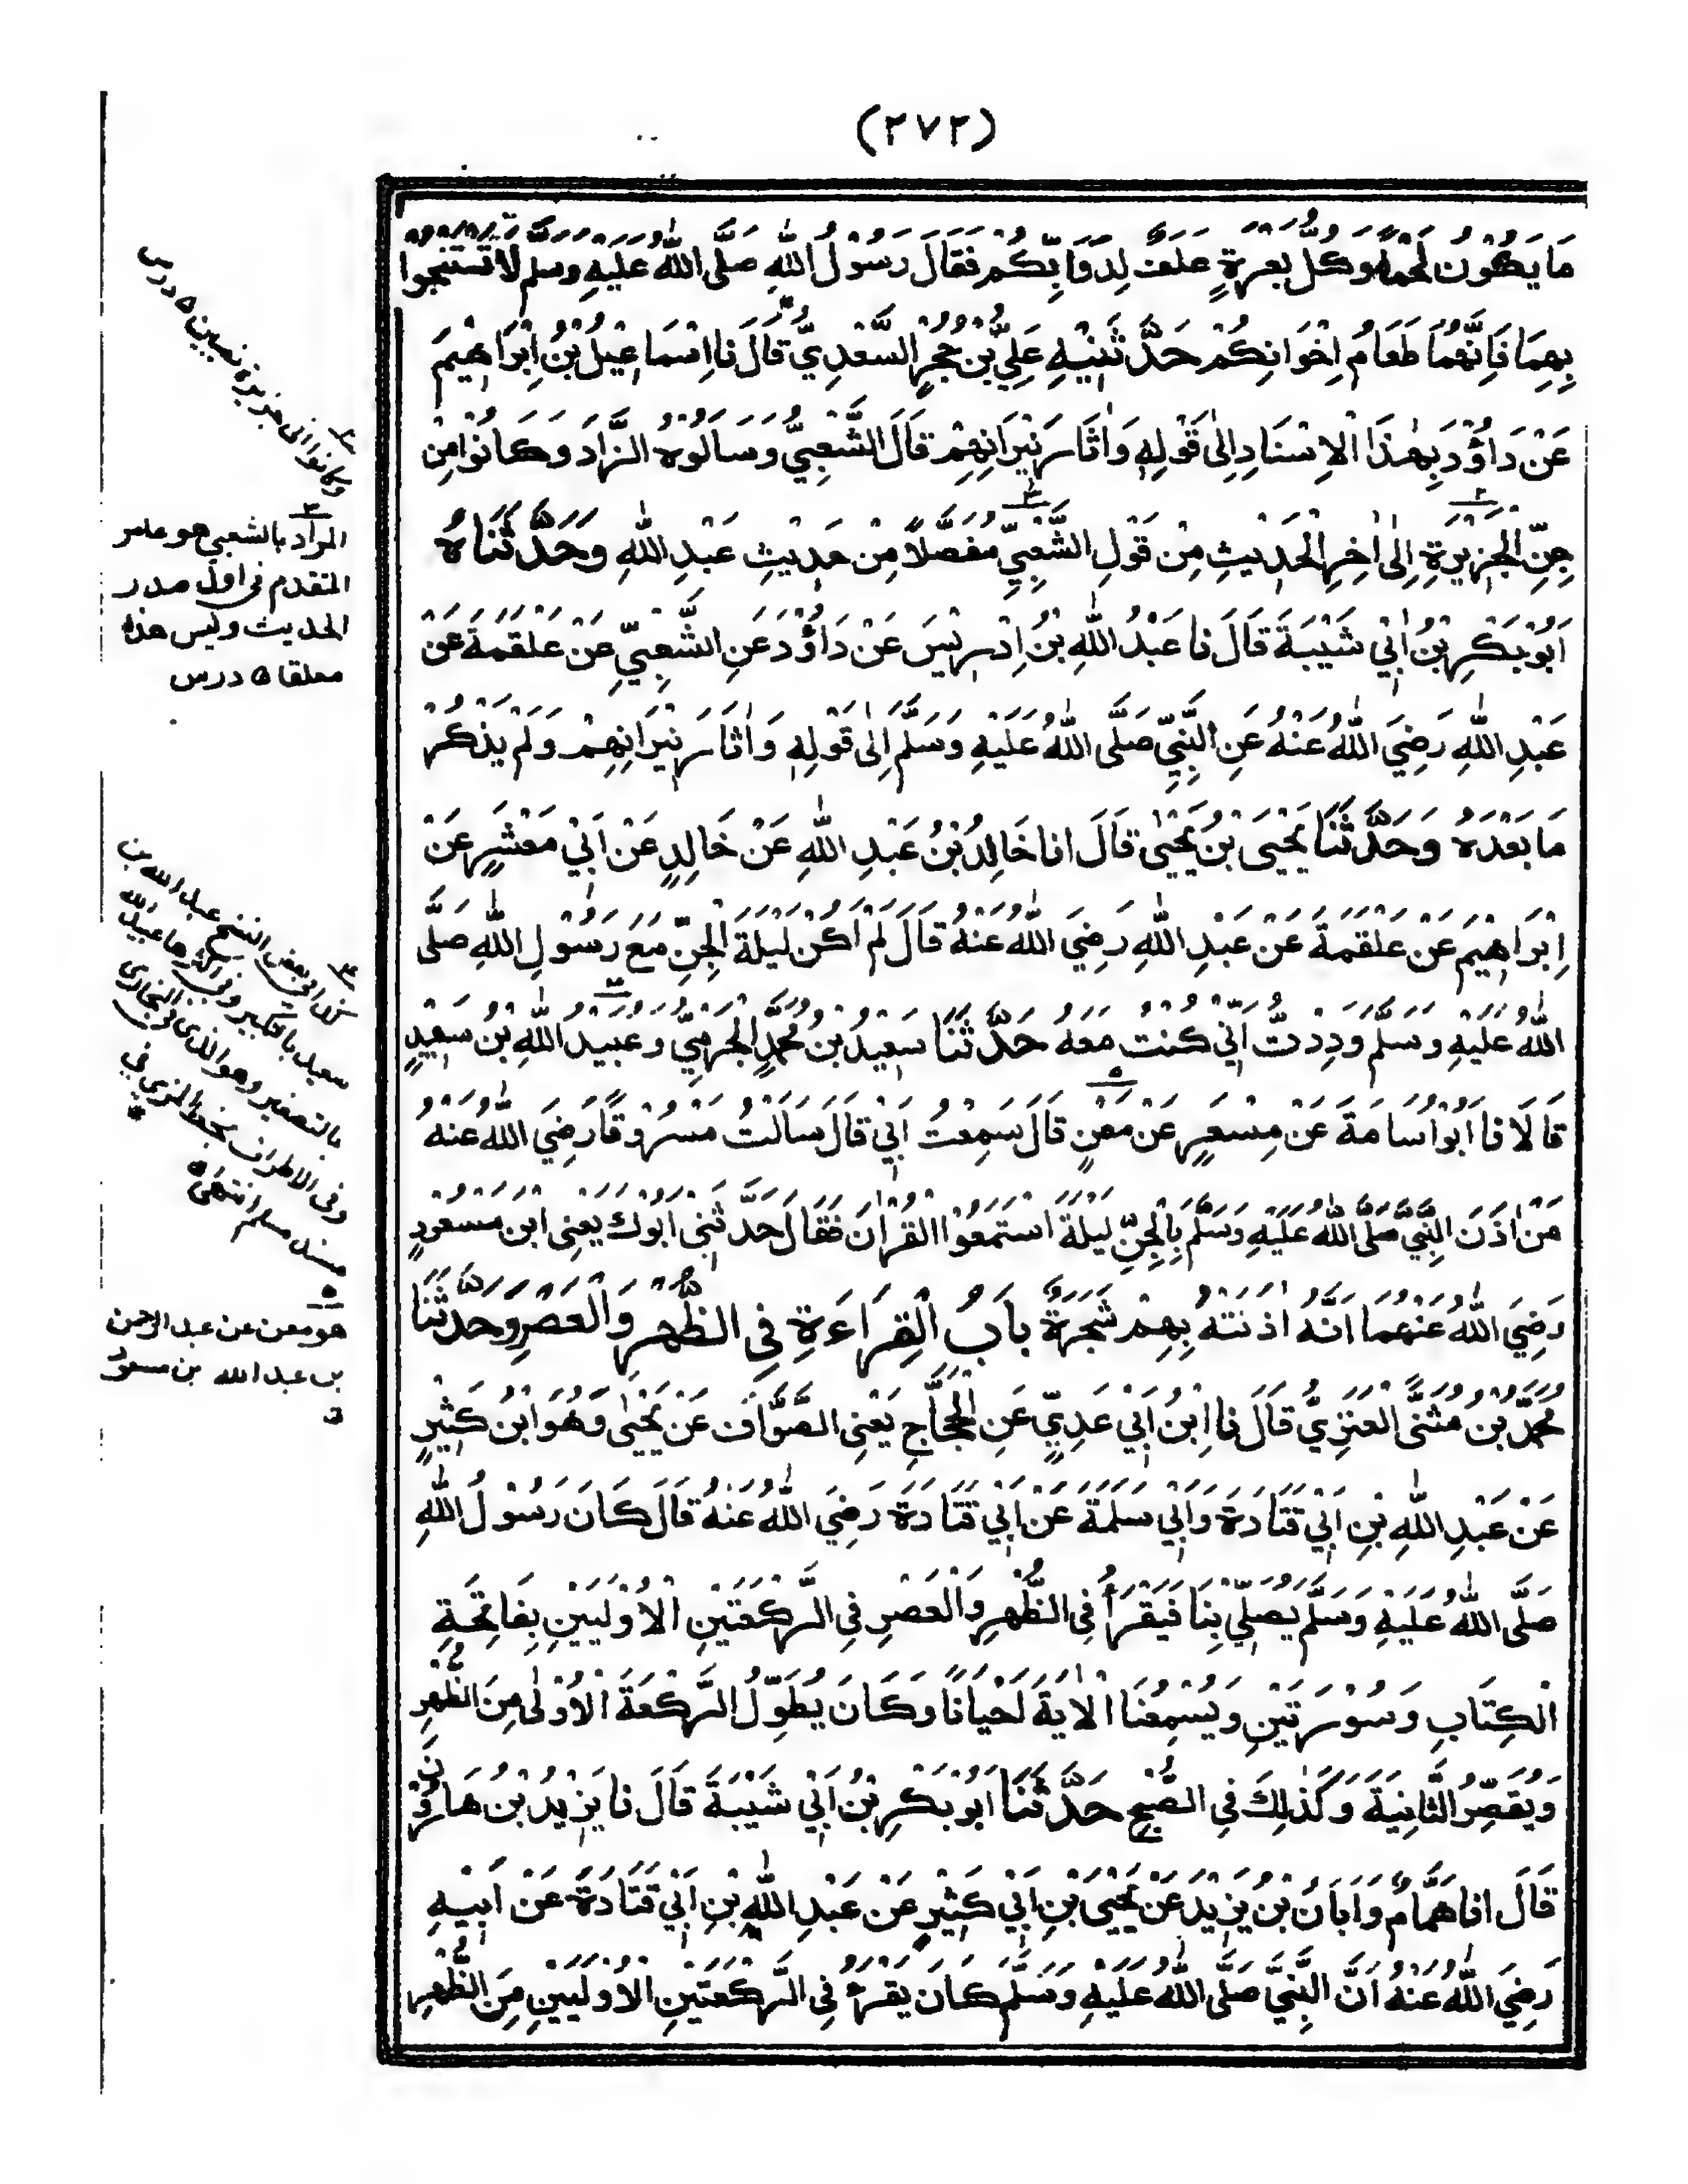 (۲۷۲)
مَا يَكُوْنُ لَحْمًا وَكُلُّ بَعْرَةٍ عَلَفٌ لِدَوَابِّكُمْ فَقَالَ رَسُوْلُ اللّٰهِ صَلَّى اللّٰهُ عَلَيْهِ وَسَلَّمَ لَا تَسْتَنْجُوْا
بِهِمَا فَاِنَّهُمَا طَعَامُ اِخْوَانِكُمْ حَدَّثَنِيْهِ عَلِيُّ بْنُ حُجْرٍ السَّعْدِيُّ قَالَ نا اِسْمَاعِيْلُ بْنُ اِبْرَاهِيْمَ
عَنْ دَاوٗدَ بِهٰذَا الْاِسْنَادِ اِلٰى قَوْلِهٖ وَاٰثَارَ نِيْرَانِهِمْ قَالَ الشَّعْبِيُّ وَسَاَلُوْهُ الزَّادَ وَكَانُوْا مِنْ
جِنِّ الْجَزِيْرَةِ ۲ اِلٰى اٰخِرِ الْحَدِيْثِ مِنْ قَوْلِ الشَّعْبِيِّ ۳ مُفَصَّلًا مِنْ حَدِيْثِ عَبْدِ اللّٰهِ وَحَدَّثَنَاهُ
اَبُوْ بَكْرِ بْنُ اَبِيْ شَيْبَةَ قَالَ نا عَبْدُ اللّٰهِ بْنُ اِدْرِيْسَ عَنْ دَاوٗدَ عَنِ الشَّعْبِيِّ عَنْ عَلْقَمَةَ عَنْ
عَبْدِ اللّٰهِ رَضِيَ اللّٰهُ عَنْهُ عَنِ النَّبِيِّ صَلَّى اللّٰهُ عَلَيْهِ وَسَلَّمَ اِلٰى قَوْلِهٖ وَاٰثَارَ نِيْرَانِهِمْ وَلَمْ يَذْكُرْ
مَا بَعْدَهٗ وَحَدَّثَنَا يَحْيَى بْنُ يَحْيٰى قَالَ انا خَالِدُ بْنُ عَبْدِ اللّٰهِ عَنْ خَالِدٍ عَنْ اَبِيْ مَعْشَرٍ عَنْ
اِبْرَاهِيْمَ عَنْ عَلْقَمَةَ عَنْ عَبْدِ اللّٰهِ رَضِيَ اللّٰهُ عَنْهُ قَالَ لَمْ اَكُنْ لَيْلَةَ الْجِنِّ مَعَ رَسُوْلِ اللّٰهِ صَلَّى
اللّٰهُ عَلَيْهِ وَسَلَّمَ وَدِدْتُّ اَنِّيْ كُنْتُ مَعَهٗ حَدَّثَنَا سَعِيْدُ بْنُ مُحَمَّدٍ الْجَرْمِيُّ وَعُبَيْدُ اللّٰهِ بْنُ سَعِيْدٍ
قَالَا نا اَبُوْ اُسَامَةَ عَنْ مِسْعَرٍ عَنْ مَعْنٍ ٥ قَالَ سَمِعْتُ اَبِيْ قَالَ سَاَلْتُ مَسْرُوْقًا رَضِيَ اللّٰهُ عَنْهُ
مَنْ اٰذَنَ النَّبِيَّ صَلَّى اللّٰهُ عَلَيْهِ وَسَلَّمَ بِالْجِنِّ لَيْلَةَ اسْتَمَعُوا الْقُرْاٰنَ فَقَالَ حَدَّثَنِيْ اَبُوْكَ يَعْنِى ابْنَ مَسْعُوْدٍ
رَضِيَ اللّٰهُ عَنْهُمَا اَنَّهٗ اٰذَنَتْهُ بِهِمْ شَجَرَةٌ بَابُ الْقِرَاءَةِ فِى الظُّهْرِ وَالْعَصْرِ وَحَدَّثَنَا
مُحَمَّدُ بْنُ مُثَنَّى الْعَنَزِيُّ قَالَ نا ابْنُ اَبِيْ عَدِيٍّ عَنِ الْحَجَّاجِ يَعْنِى الصَّوَّافَ عَنْ يَحْيٰى وَهُوَ ابْنُ كَثِيْرٍ
عَنْ عَبْدِ اللّٰهِ بْنِ اَبِيْ قَتَادَةَ وَاَبِيْ سَلَمَةَ عَنْ اَبِيْ قَتَادَةَ رَضِيَ اللّٰهُ عَنْهُ قَالَ كَانَ رَسُوْلُ اللّٰهِ
صَلَّى اللّٰهُ عَلَيْهِ وَسَلَّمَ يُصَلِّيْ بِنَا فَيَقْرَاُ فِى الظُّهْرِ وَالْعَصْرِ فِى الرَّكْعَتَيْنِ الْاُوْلَيَيْنِ بِفَاتِحَةِ
الْكِتَابِ وَسُوْرَتَيْنِ وَيُسْمِعُنَا الْاٰيَةَ اَحْيَانًا وَكَانَ يُطَوِّلُ الرَّكْعَةَ الْاُوْلٰى مِنَ الظُّهْرِ
وَيُقَصِّرُ الثَّانِيَةَ وَكَذٰلِكَ فِى الصُّبْحِ حَدَّثَنَا اَبُوْ بَكْرِ بْنُ اَبِيْ شَيْبَةَ قَالَ نا يَزِيْدُ بْنُ هَارُوْنَ
قَالَ انا هَمَّامٌ وَاَبَانُ بْنُ يَزِيْدَ عَنْ يَحْيَى بْنِ اَبِيْ كَثِيْرٍ عَنْ عَبْدِ اللّٰهِ بْنِ اَبِيْ قَتَادَةَ عَنْ اَبِيْهِ
رَضِيَ اللّٰهُ عَنْهُ اَنَّ النَّبِيَّ صَلَّى اللّٰهُ عَلَيْهِ وَسَلَّمَ كَانَ يَقْرَاُ فِى الرَّكْعَتَيْنِ الْاُوْلَيَيْنِ مِنَ الظُّهْرِ
۲
وكانوا اى جن جزيرة نصيبين ٥ درس
۳
المراد بالشعبي هو عامر
المتقدم فى اول صدر
الحديث وليس هذا
معلقا ٥ درس
۴
كذا فى بعض النسخ عبد الله بن
سعيد بالتكبير وفى اكثرها عبيد الله
بالتصغير وهو الذى فى البخارى
وفى الاطراف بخط المزى فى
مسند مسلم انتهى
٥
هو معن عن عبد الرحمن
بن عبد الله بن مسعود